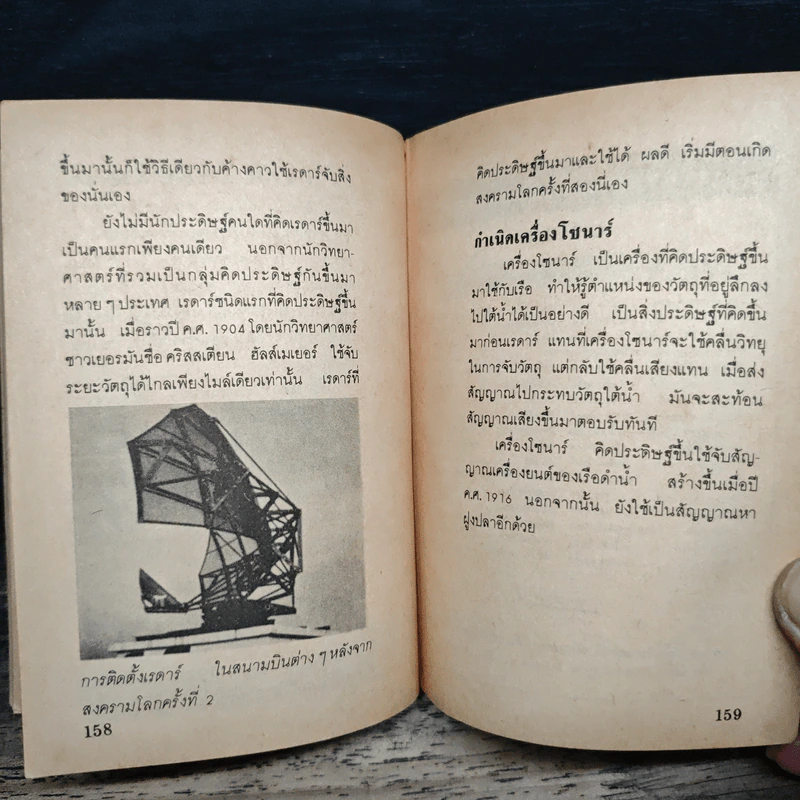 ขึ้นมานั้นก็ใช้วิธีเดียวกับค้างคาวใช้เรดาร์จับสิ่ง
ของนั่นเอง
ยังไม่มีนักประดิษฐ์คนใดที่คิดเรดาร์ขึ้นมา
เป็นคนแรกเพียงคนเดียว นอกจากนักวิทยา-
ศาสตร์ที่รวมเป็นกลุ่มคิดประดิษฐ์กันขึ้นมา
หลาย ๆ ประเทศ เรดาร์ชนิดแรกที่คิดประดิษฐ์ขึ้น
มานั้น เมื่อราวปี ค.ศ. 1904 โดยนักวิทยาศาสตร์
ชาวเยอรมันชื่อ คริสสเตียน ฮัลส์เมเยอร์ ใช้จับ
ระยะวัตถุได้ไกลเพียงไมล์เดียวเท่านั้น เรดาร์ที่
การติดตั้งเรดาร์ ในสนามบินต่าง ๆ หลังจาก
สงครามโลกครั้งที่ 2
158
คิดประดิษฐ์ขึ้นมาและใช้ได้ ผลดี เริ่มมีตอนเกิด
สงครามโลกครั้งที่สองนี่เอง
กำเนิดเครื่องโซนาร์
เครื่องโซนาร์ เป็นเครื่องที่คิดประดิษฐ์ขึ้น
มาใช้กับเรือ ทำให้รู้ตำแหน่งของวัตถุที่อยู่ลึกลง
ไปใต้น้ำได้เป็นอย่างดี เป็นสิ่งประดิษฐ์ที่คิดขึ้น
มาก่อนเรดาร์ แทนที่เครื่องโซนาร์จะใช้คลื่นวิทยุ
ในการจับวัตถุ แต่กลับใช้คลื่นเสียงแทน เมื่อส่ง
สัญญาณไปกระทบวัตถุใต้น้ำ มันจะสะท้อน
สัญญาณเสียงขึ้นมาตอบรับทันที
เครื่องโซนาร์ คิดประดิษฐ์ขึ้นใช้จับสัญ-
ญาณเครื่องยนต์ของเรือดำน้ำ สร้างขึ้นเมื่อปี
ค.ศ. 1916 นอกจากนั้น ยังใช้เป็นสัญญาณหา
ฝูงปลาอีกด้วย
159